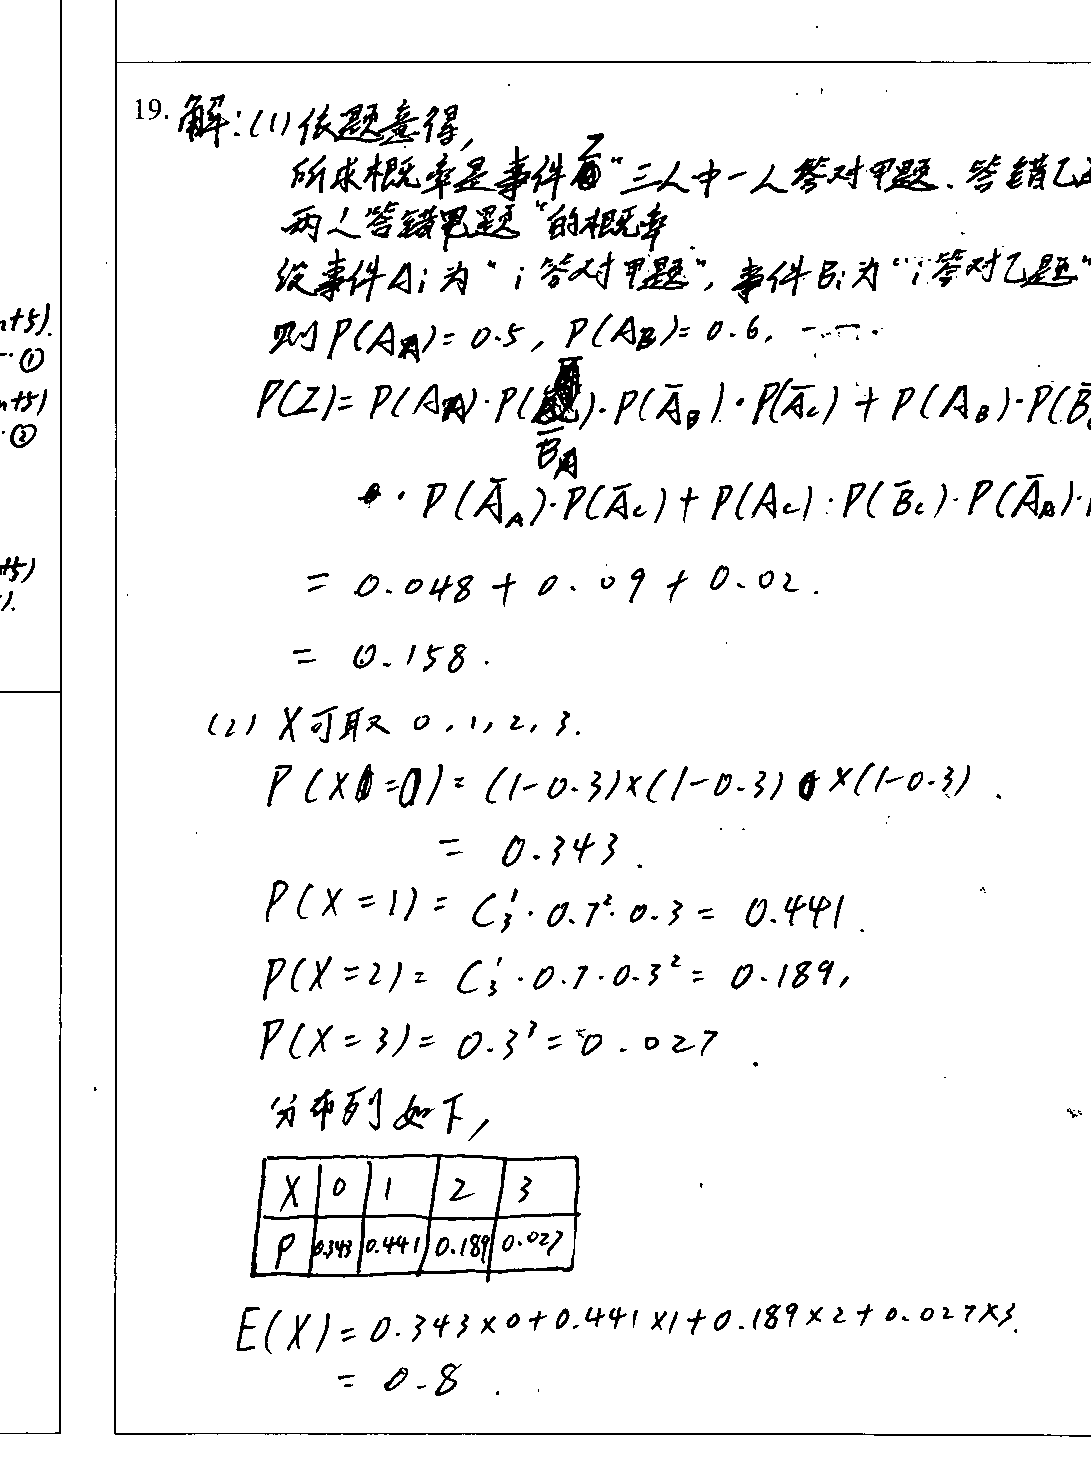 nt5).
①
nt5)
②
nt5)
19. 解:(1)依题意得,
所求概率是事件Z“三人中一人答对甲题、答错乙
两人答错甲题”的概率
设事件Ai为“i答对甲题”,事件Bi为“i答对乙题”
则P(A_A)=0.5, P(A_B)=0.6, ……
P(Z)=P(A_A)·P(B̄_A)·P(Ā_B)·P(Ā_C)+P(A_B)·P(B̄
·P(Ā_A)·P(Ā_C)+P(A_C)·P(B̄_C)·P(Ā_A)·
=0.048+0.09+0.02.
=0.158.
(2) X可取 0, 1, 2, 3.
P(X=0)=(1-0.3)×(1-0.3)×(1-0.3).
=0.343.
P(X=1)=C₃¹·0.7²·0.3=0.441.
P(X=2)=C₃¹·0.7·0.3²=0.189,
P(X=3)=0.3³=0.027.
分布列如下,
X 0 1 2 3
P 0.343 0.441 0.189 0.027
E(X)=0.343×0+0.441×1+0.189×2+0.027×3.
=0.8.